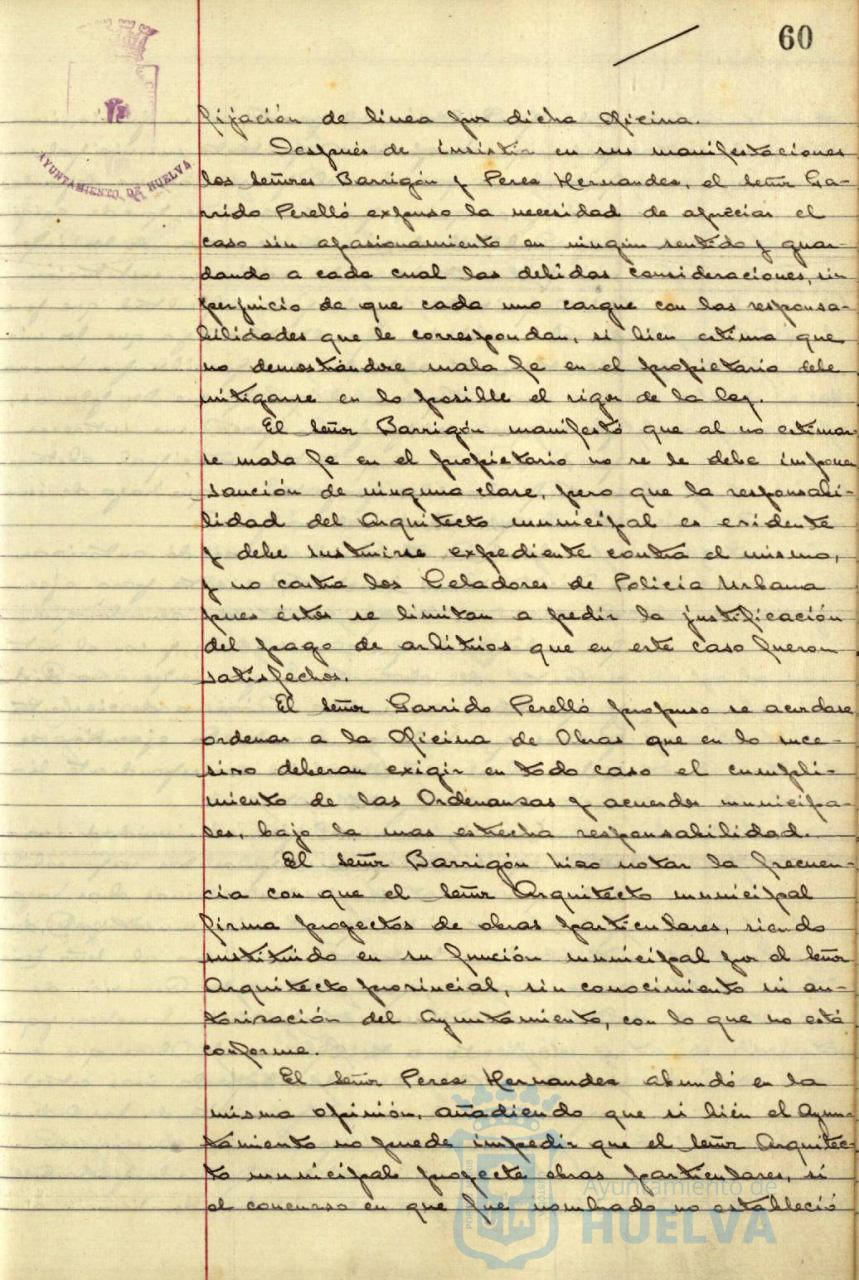 60
AYUNTAMIENTO DE HUELVA
fijación de linea por dicha Oficina.
Después de insistir en sus manifestaciones
los señores Barrigón y Peres Hernandes, el señor Ga-
rrido Perelló expuso la necesidad de apreciar el
caso sin apasionamiento en ningún sentido y guar-
dando a cada cual las debidas consideraciones, sin
perjuicio de que cada uno cargue con las responsa-
bilidades que le correspondan, si bien estima que
no demostrándose mala fe en el propietario debe
mitigarse en lo posible el rigor de la ley.
El señor Barrigón manifestó que al no estimar-
se mala fe en el propietario no se le debe imponer
sanción de ninguna clase, pero que la responsabi-
lidad del Arquitecto municipal es evidente
y debe instruirse expediente contra el mismo,
y no contra los Celadores de Policía Urbana
pues éstos se limitan a pedir la justificación
del pago de arbitrios que en este caso fueron
satisfechos.
El señor Garrido Perelló propuso se acordase
ordenar a la Oficina de Obras que en lo suce-
sivo deberan exigir en todo caso el cumpli-
miento de las Ordenanzas y acuerdos municipa-
les, bajo la mas estrecha responsabilidad.
El señor Barrigón hizo notar la frecuen-
cia con que el señor Arquitecto municipal
firma proyectos de obras particulares, siendo
sustituido en su función municipal por el señor
Arquitecto provincial, sin conocimiento ni au-
torización del Ayuntamiento, con lo que no está
conforme.
El señor Peres Hernandes abundó en la
misma opinión, añadiendo que si bién el Ayun-
tamiento no puede impedir que el señor Arquitec-
to municipal proyecte obras particulares, si
el concurso en que fue nombrado no estableció
Ayuntamiento de
HUELVA